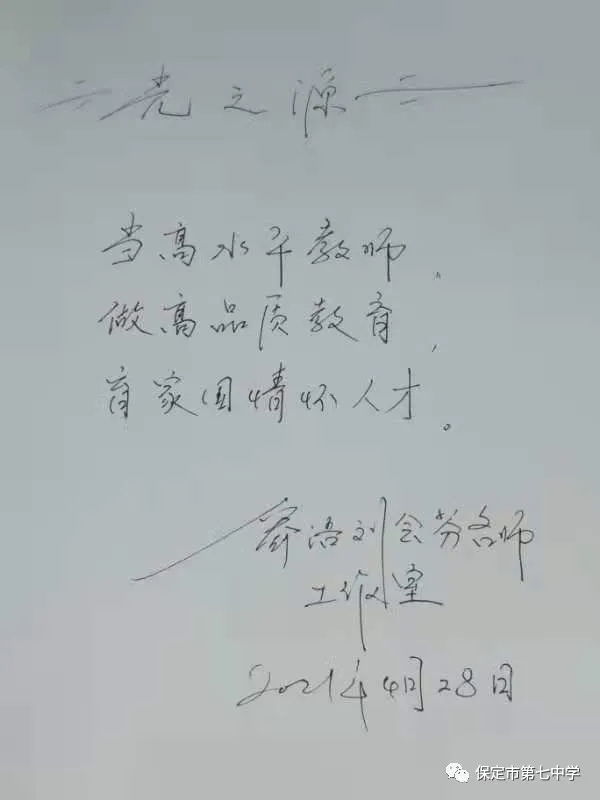 光之源
当高水平教师、
做高品质教育,
育家国情怀人才。
刘会芬名师
工作室
2021年4月28日
保定市第七中学